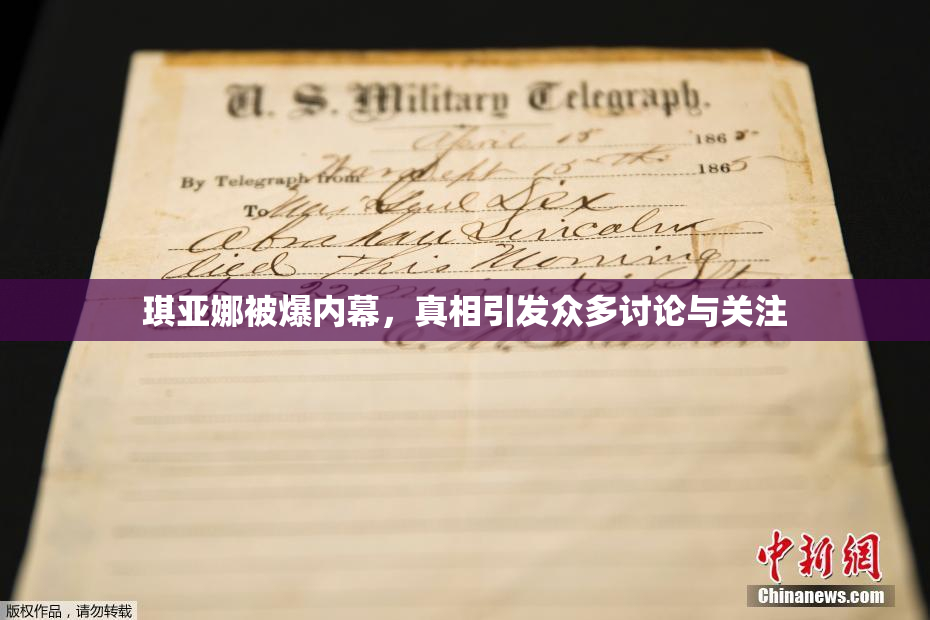 U. S. Military Telegraph.
April 15 1865
By Telegraph from War Dept 15th 1865
To Maj Genl Dix
Abraham Lincoln
died This Morning
22 minutes after
琪亚娜被爆内幕，真相引发众多讨论与关注
中新网
Chinanews.com
版权作品，请勿转载